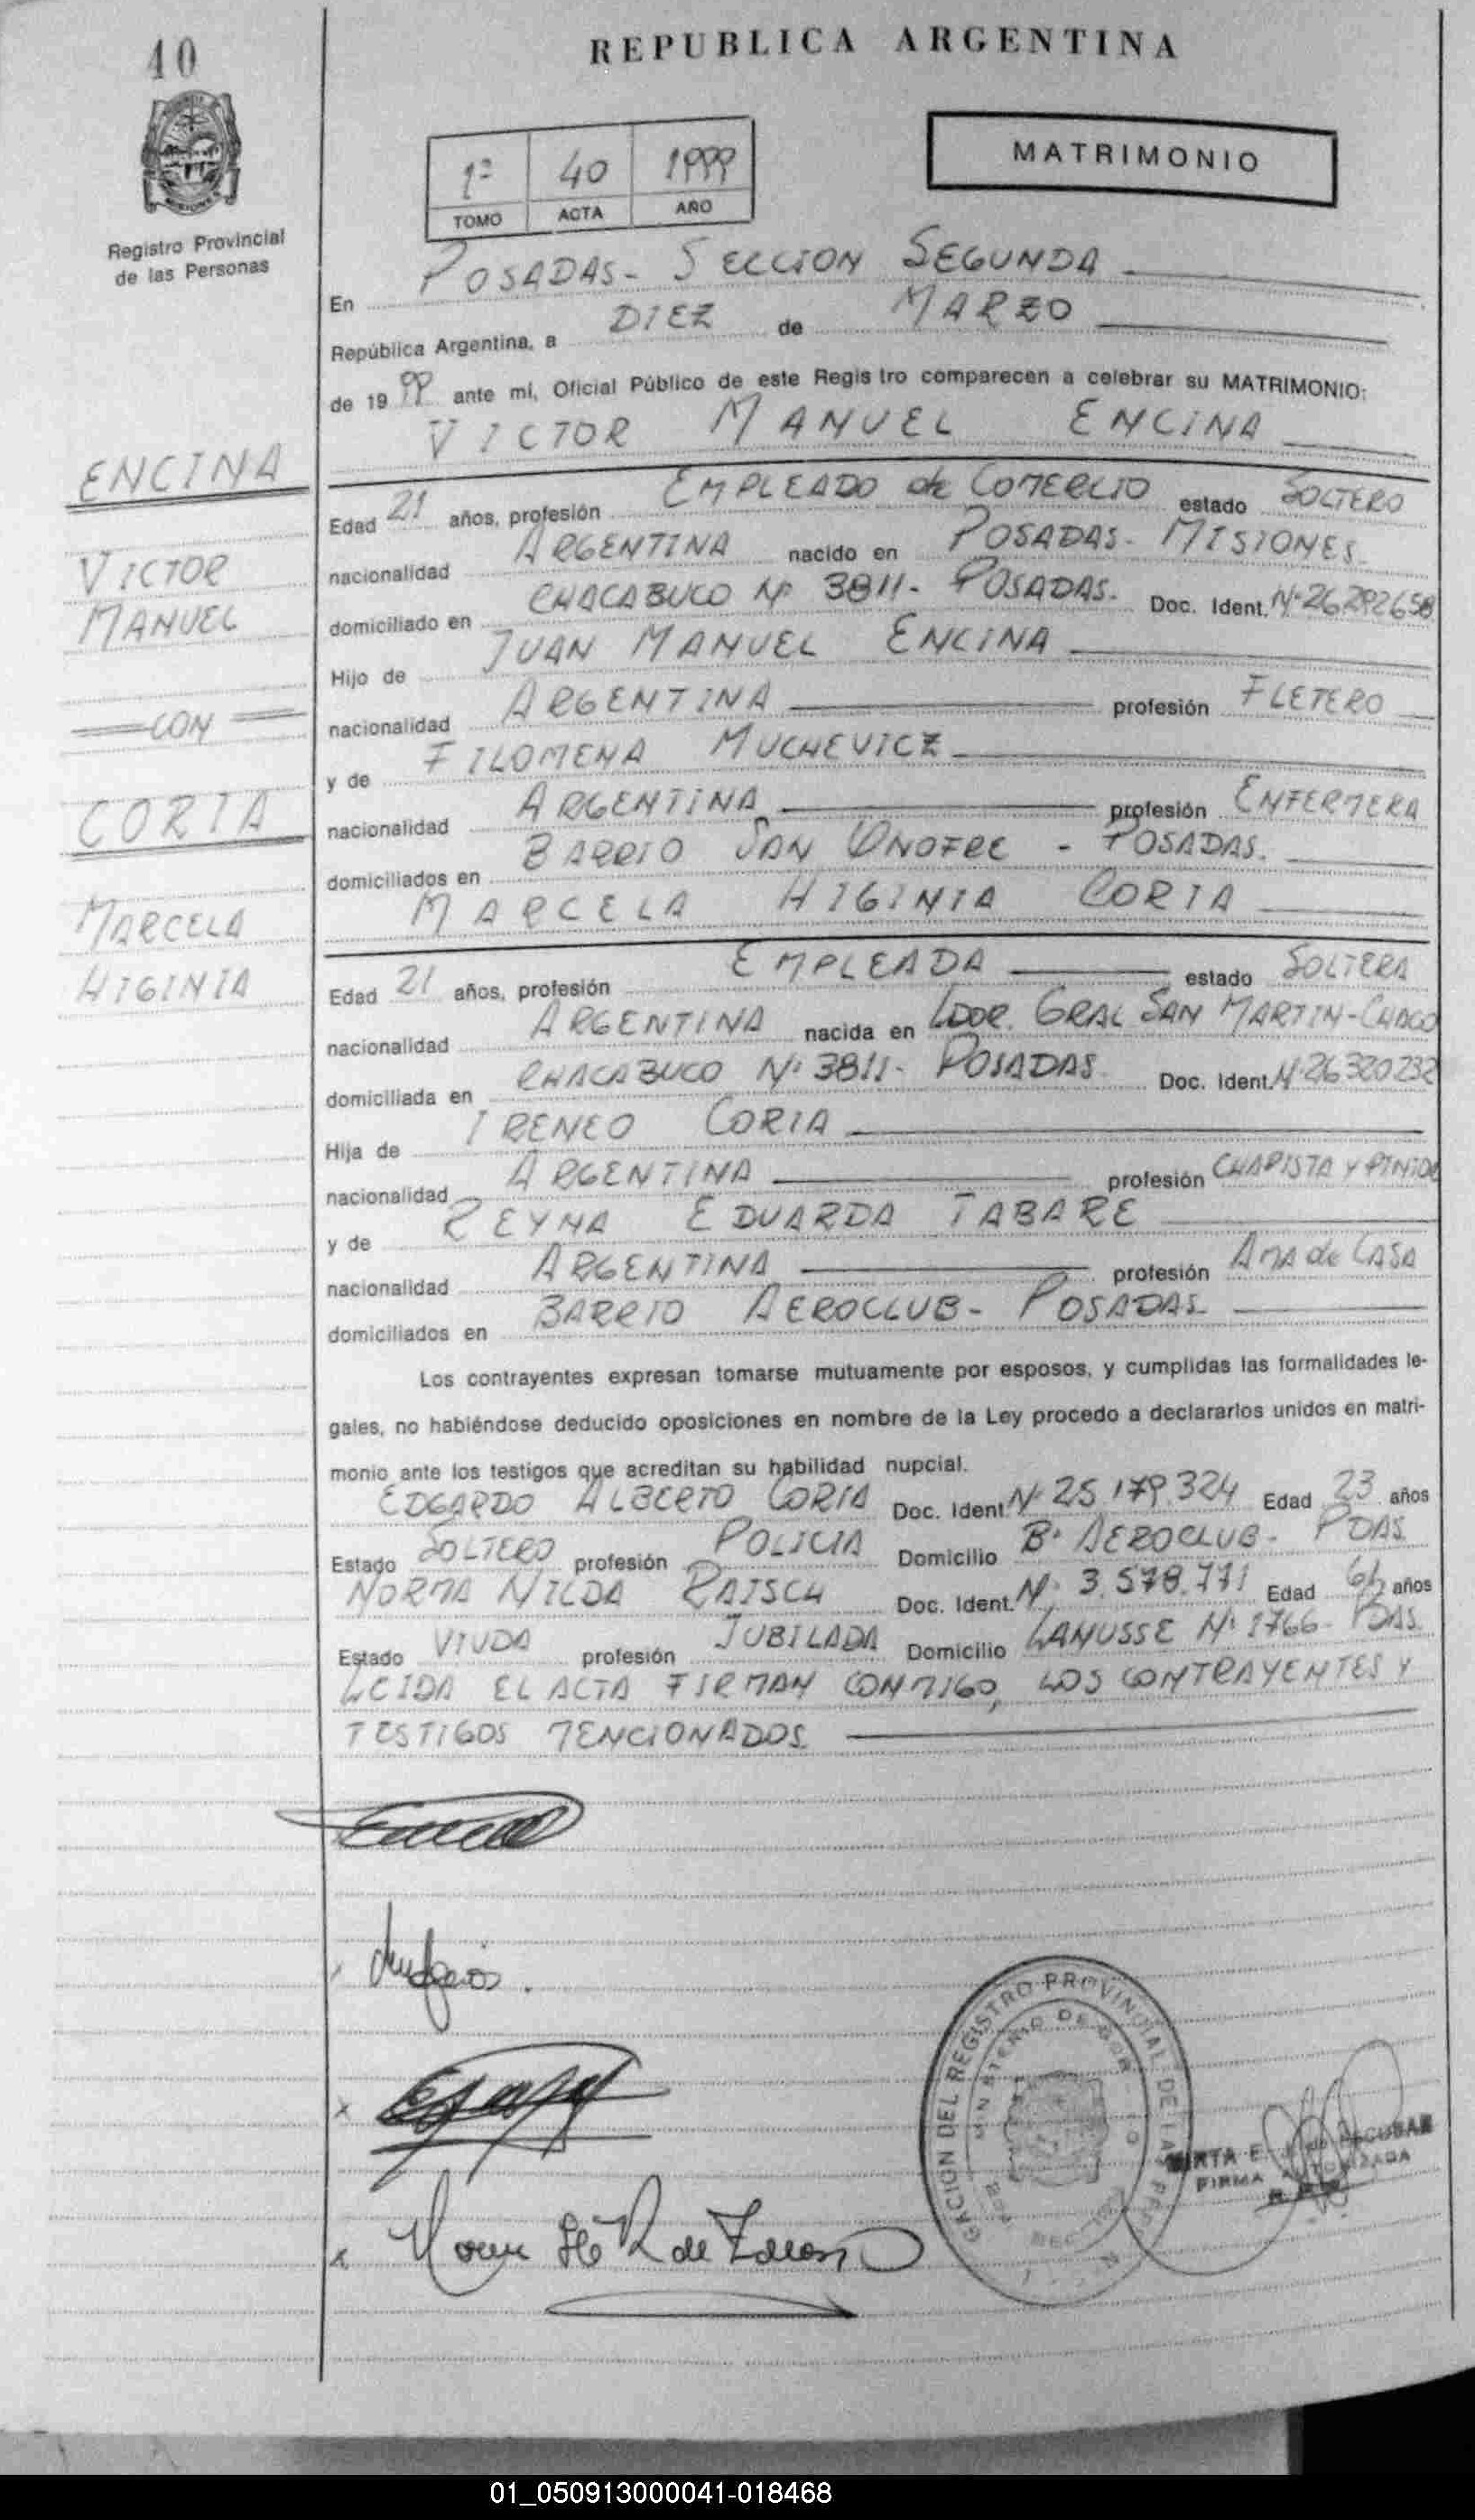 40
REPUBLICA ARGENTINA
MATRIMONIO
1º 40 1999
TOMO ACTA AÑO
Registro Provincial
de las Personas
En POSADAS- SECCION SEGUNDA
República Argentina, a DIEZ de MARZO
de 19 99 ante mí, Oficial Público de este Registro comparecen a celebrar su MATRIMONIO:
VICTOR MANUEL ENCINA
ENCINA
VICTOR
MANUEL
CON
CORIA
MARCELA
HIGINIA
Edad 21 años, profesión EMPLEADO de COMERCIO estado SOLTERO
nacionalidad ARGENTINA nacido en POSADAS- MISIONES.
domiciliado en CHACABUCO Nº 3811- POSADAS. Doc. Ident. Nº 26.292658
Hijo de JUAN MANUEL ENCINA
nacionalidad ARGENTINA profesión FLETERO
y de FILOMENA MUCHEVICZ
nacionalidad ARGENTINA profesión ENFERMERA
domiciliados en BARRIO SAN ONOFRE - POSADAS.
MARCELA HIGINIA CORIA
Edad 21 años, profesión EMPLEADA estado SOLTERA
nacionalidad ARGENTINA nacida en LDOR. GRAL SAN MARTIN-CHACO
domiciliada en CHACABUCO Nº 3811- POSADAS. Doc. Ident. Nº 26320232
Hija de IRENEO CORIA
nacionalidad ARGENTINA profesión CHAPISTA Y PINTOR
y de REYNA EDUARDA TABARE
nacionalidad ARGENTINA profesión AMA de CASA
domiciliados en BARRIO AEROCLUB- POSADAS
Los contrayentes expresan tomarse mutuamente por esposos, y cumplidas las formalidades le-
gales, no habiéndose deducido oposiciones en nombre de la Ley procedo a declararlos unidos en matri-
monio ante los testigos que acreditan su habilidad nupcial.
EDGARDO ALBERTO CORIA Doc. Ident. Nº 25.179.324 Edad 23 años
Estado SOLTERO profesión POLICIA Domicilio Bº AEROCLUB- PDAS
NORMA NILDA RAISCH Doc. Ident. Nº 3.578.771 Edad años
Estado VIUDA profesión JUBILADA Domicilio LANUSSE Nº 1766- PDAS.
LEIDA EL ACTA FIRMAN CONMIGO, LOS CONTRAYENTES Y
TESTIGOS MENCIONADOS
REGISTRO PROVINCIAL DE LAS
MINISTERIO DE
ESCOBAR
FIRMA AUTORIZADA
01_050913000041-018468